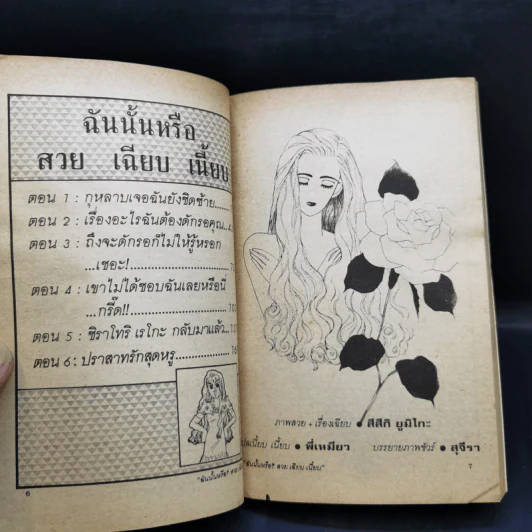 ฉันนั้นหรือ
สวย เฉียบ เนี้ยบ
ตอน 1 : กุหลาบเจอฉันยังชิดซ้าย.......
ตอน 2 : เรื่องอะไรฉันต้องดักรอคุณ...
ตอน 3 : ถึงจะดักรอก็ไม่ให้รู้หรอก
...เชอะ!
ตอน 4 : เขาไม่ได้ชอบฉันเลยหรือนี่
...กรี๊ด!!
ตอน 5 : ชิราโทริ เรโกะ กลับมาแล้ว...
ตอน 6 : ปราสาทรักสุดหรู
6
ภาพสวย + เรื่องเฉียบ ● สึสึกิ ยูมิโกะ
เนี้ยบ เนี้ยบ ● พี่เหมียว บรรยายภาพชัวร์ ● สุจีรา
"ฉันนั้นหรือ? สวย เฉียบ เนี้ยบ"
7